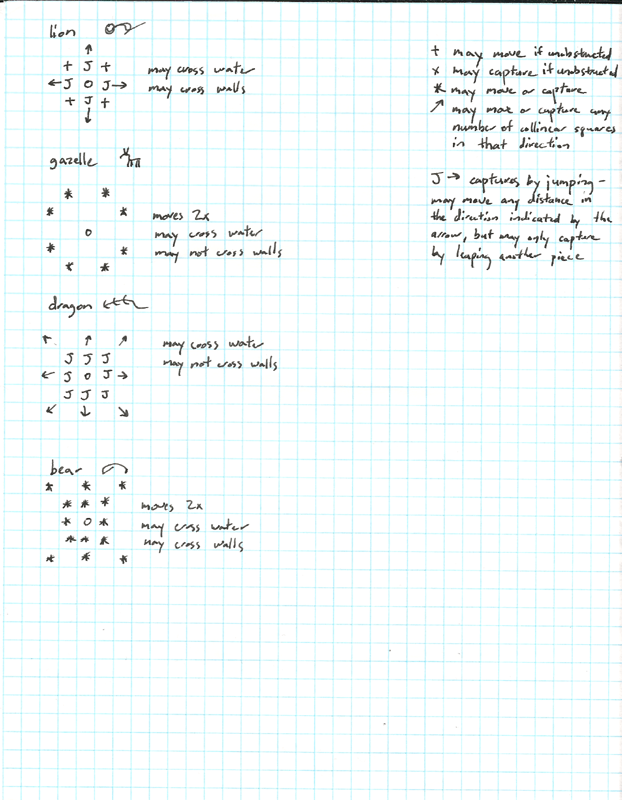 lion
↑
+ J +
← J O J →
+ J +
↓
may cross water
may cross walls
gazelle
* *
* *
O
* *
* *
moves 2x
may cross water
may not cross walls
dragon
↖ ↑ ↗
J J J
← J O J →
J J J
↙ ↓ ↘
may cross water
may not cross walls
bear
* * *
* * *
* O *
* * *
* * *
moves 2x
may cross water
may cross walls
+ may move if unobstructed
x may capture if unobstructed
* may move or capture
↗ may move or capture any
number of collinear squares
in that direction
J → captures by jumping -
may move any distance in
the direction indicated by the
arrow, but may only capture
by leaping another piece